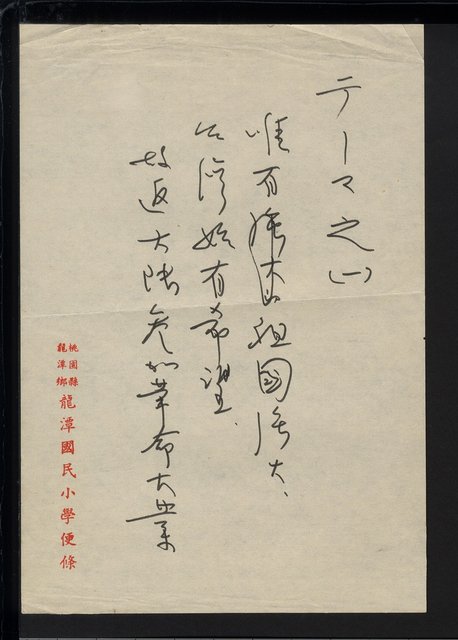 テーマ之(一)
唯有祖國強大、
台灣始有希望.
故返大陸參加革命大業
桃園縣
龍潭鄉
龍潭國民小學便條